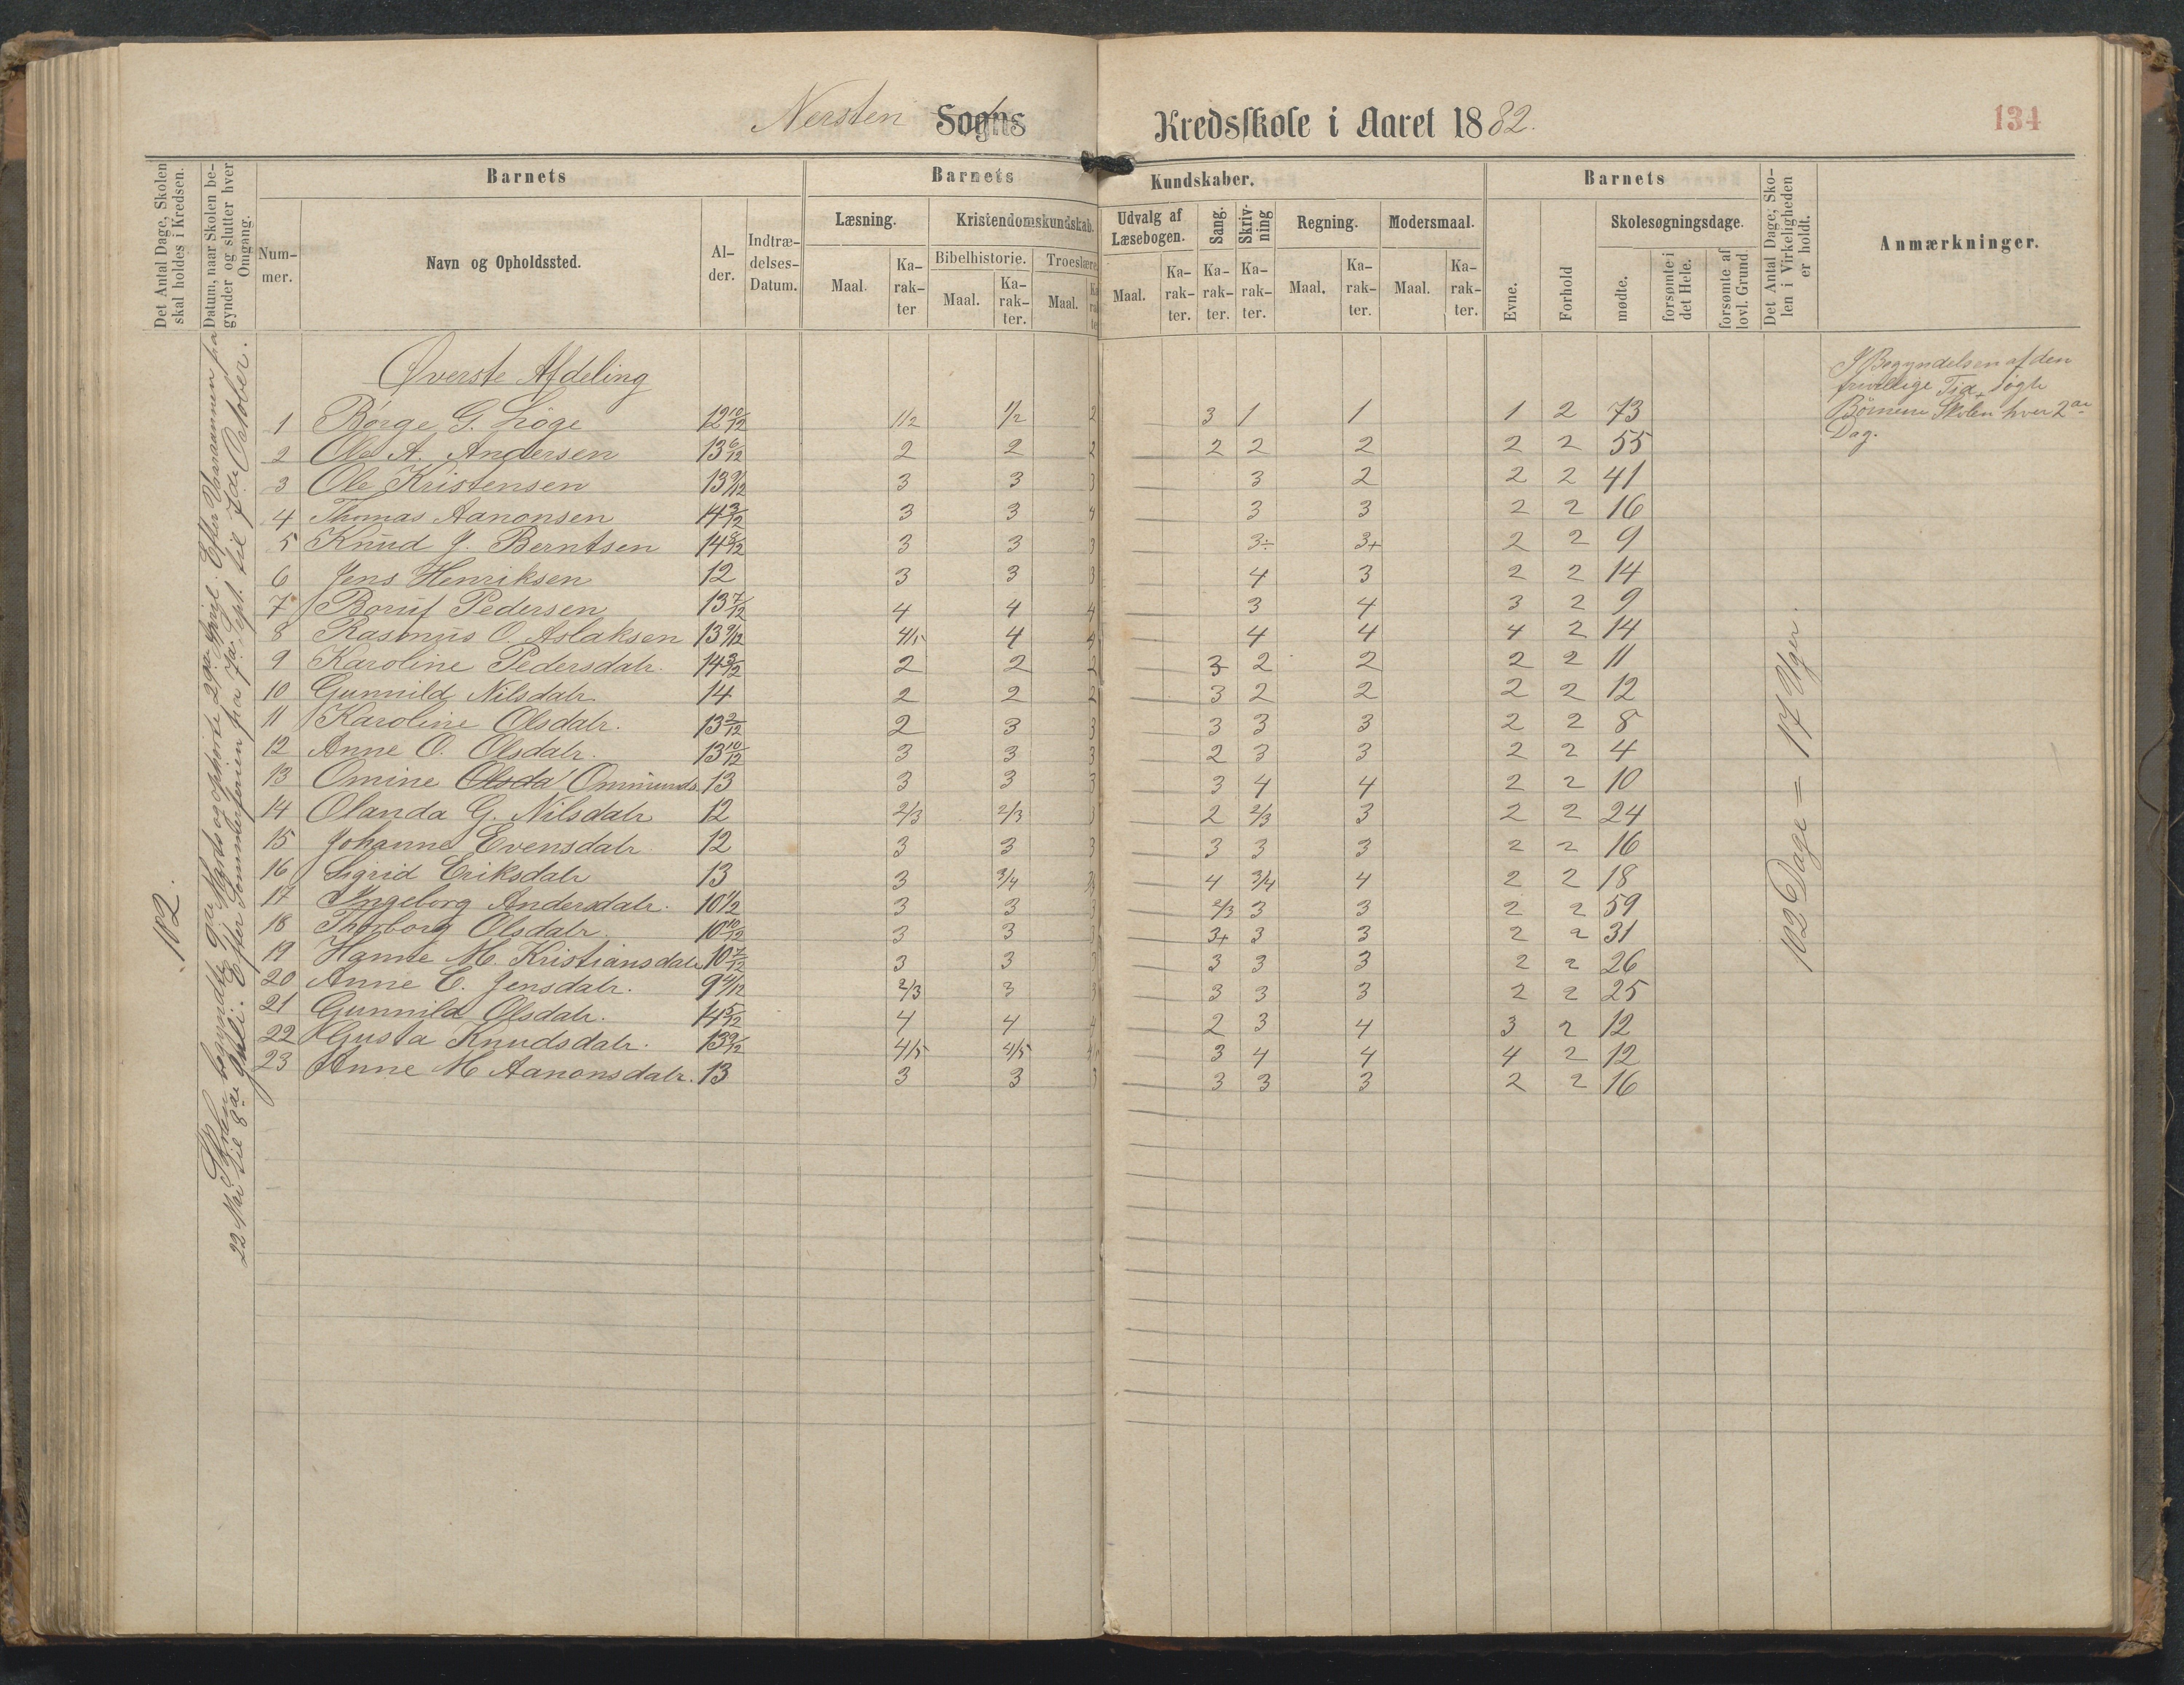 Nersten Sogns Kredsskole i Aaret 1882.
134
Det Antal Dage, Skolen skal holdes i Kredsen.
Datum, naar Skolen begynder og slutter hver Omgang.
Barnets
Nummer.
Navn og Opholdssted.
Alder.
Indtrædelses-Datum.
Barnets Kundskaber.
Læsning.
Maal.
Karakter
Kristendomskundskab.
Bibelhistorie.
Maal.
Karakter.
Troeslære
Maal.
Udvalg af Læsebogen.
Maal.
Karakter.
Sang.
Karakter.
Skrivning
Karakter.
Regning.
Maal.
Karakter.
Modersmaal.
Maal.
Karakter.
Barnets
Evne.
Forhold
Skolesøgningsdage.
mødte.
forsømte i det Hele.
forsømte af lovl. Grund.
Det Antal Dage, Skolen i Virkeligheden er holdt.
Anmærkninger.
102.
Skolen begyndte 9de Marts og ophørte 29de April. Efter Vaaraannen fra
22 Mai til 8de Juli. Efter Sommerferien fra 7de Sept. til 7de October.
Øverste Afdeling
1 Børge G. Løge 12 10/12 1/2 1/2 2 3 1 1 1 2 73
2 Ole A. Andersen 13 6/12 2 2 2 2 2 2 2 2 55
3 Ole Kristensen 13 9/12 3 3 3 3 2 2 2 41
4 Thomas Aanonsen 14 3/12 3 3 4 3 3 2 2 16
5 Knud J. Berntsen 14 8/12 3 3 3 3÷ 3+ 2 2 9
6 Jens Henriksen 12 3 3 3 4 3 2 2 14
7 Boruf Pedersen 13 7/12 4 4 4 3 4 3 2 9
8 Rasmus O. Aslaksen 13 9/12 4/5 4 4 4 4 2 14
9 Karoline Pedersdatr. 14 3/12 2 2 2 3 2 2 2 2 11
10 Gunnild Nilsdatr 14 2 2 2 3 2 2 2 2 12
11 Karoline Olsdatr. 13 2/12 2 3 3 3 3 3 2 2 8
12 Anne O. Olsdatr. 13 10/12 3 3 3 2 3 3 2 2 4
13 Omine Olsda Ommunds 13 3 3 3 3 4 4 2 2 10
14 Olanda G. Nilsdatr 12 2/3 2/3 2 2/3 3 2 2 24
15 Johanne Evensdatr 12 3 3 3 3 3 3 2 2 16
16 Sigrid Eriksdatr 13 3 3/4 4 3/4 4 2 2 18
17 Ingeborg Andersdatr. 10 1/2 3 3 3 2/3 3 3 2 2 59
18 Thorborg Olsdatr. 10 10/12 3 3 3 3+ 3 3 2 2 31
19 Hanne M. Kristiansdatr 10 7/12 3 3 3 3 3 3 2 2 26
20 Anne C. Jensdatr. 9 4/12 2/3 3 3 3 3 3 2 2 25
21 Gunnild Olsdatr. 14 5/12 4 4 4 2 3 4 3 2 12
22 Gusta Knudsdatr. 13 9/12 4/5 4/5 4/5 3 4 4 4 2 12
23 Anne M Aanonsdatr. 13 3 3 3 3 3 3 2 2 16
102 Dage = 17 Uger.
I Begyndelsen af den
frivillige Tid søgte
Børnene Skolen hver 2den
Dag.